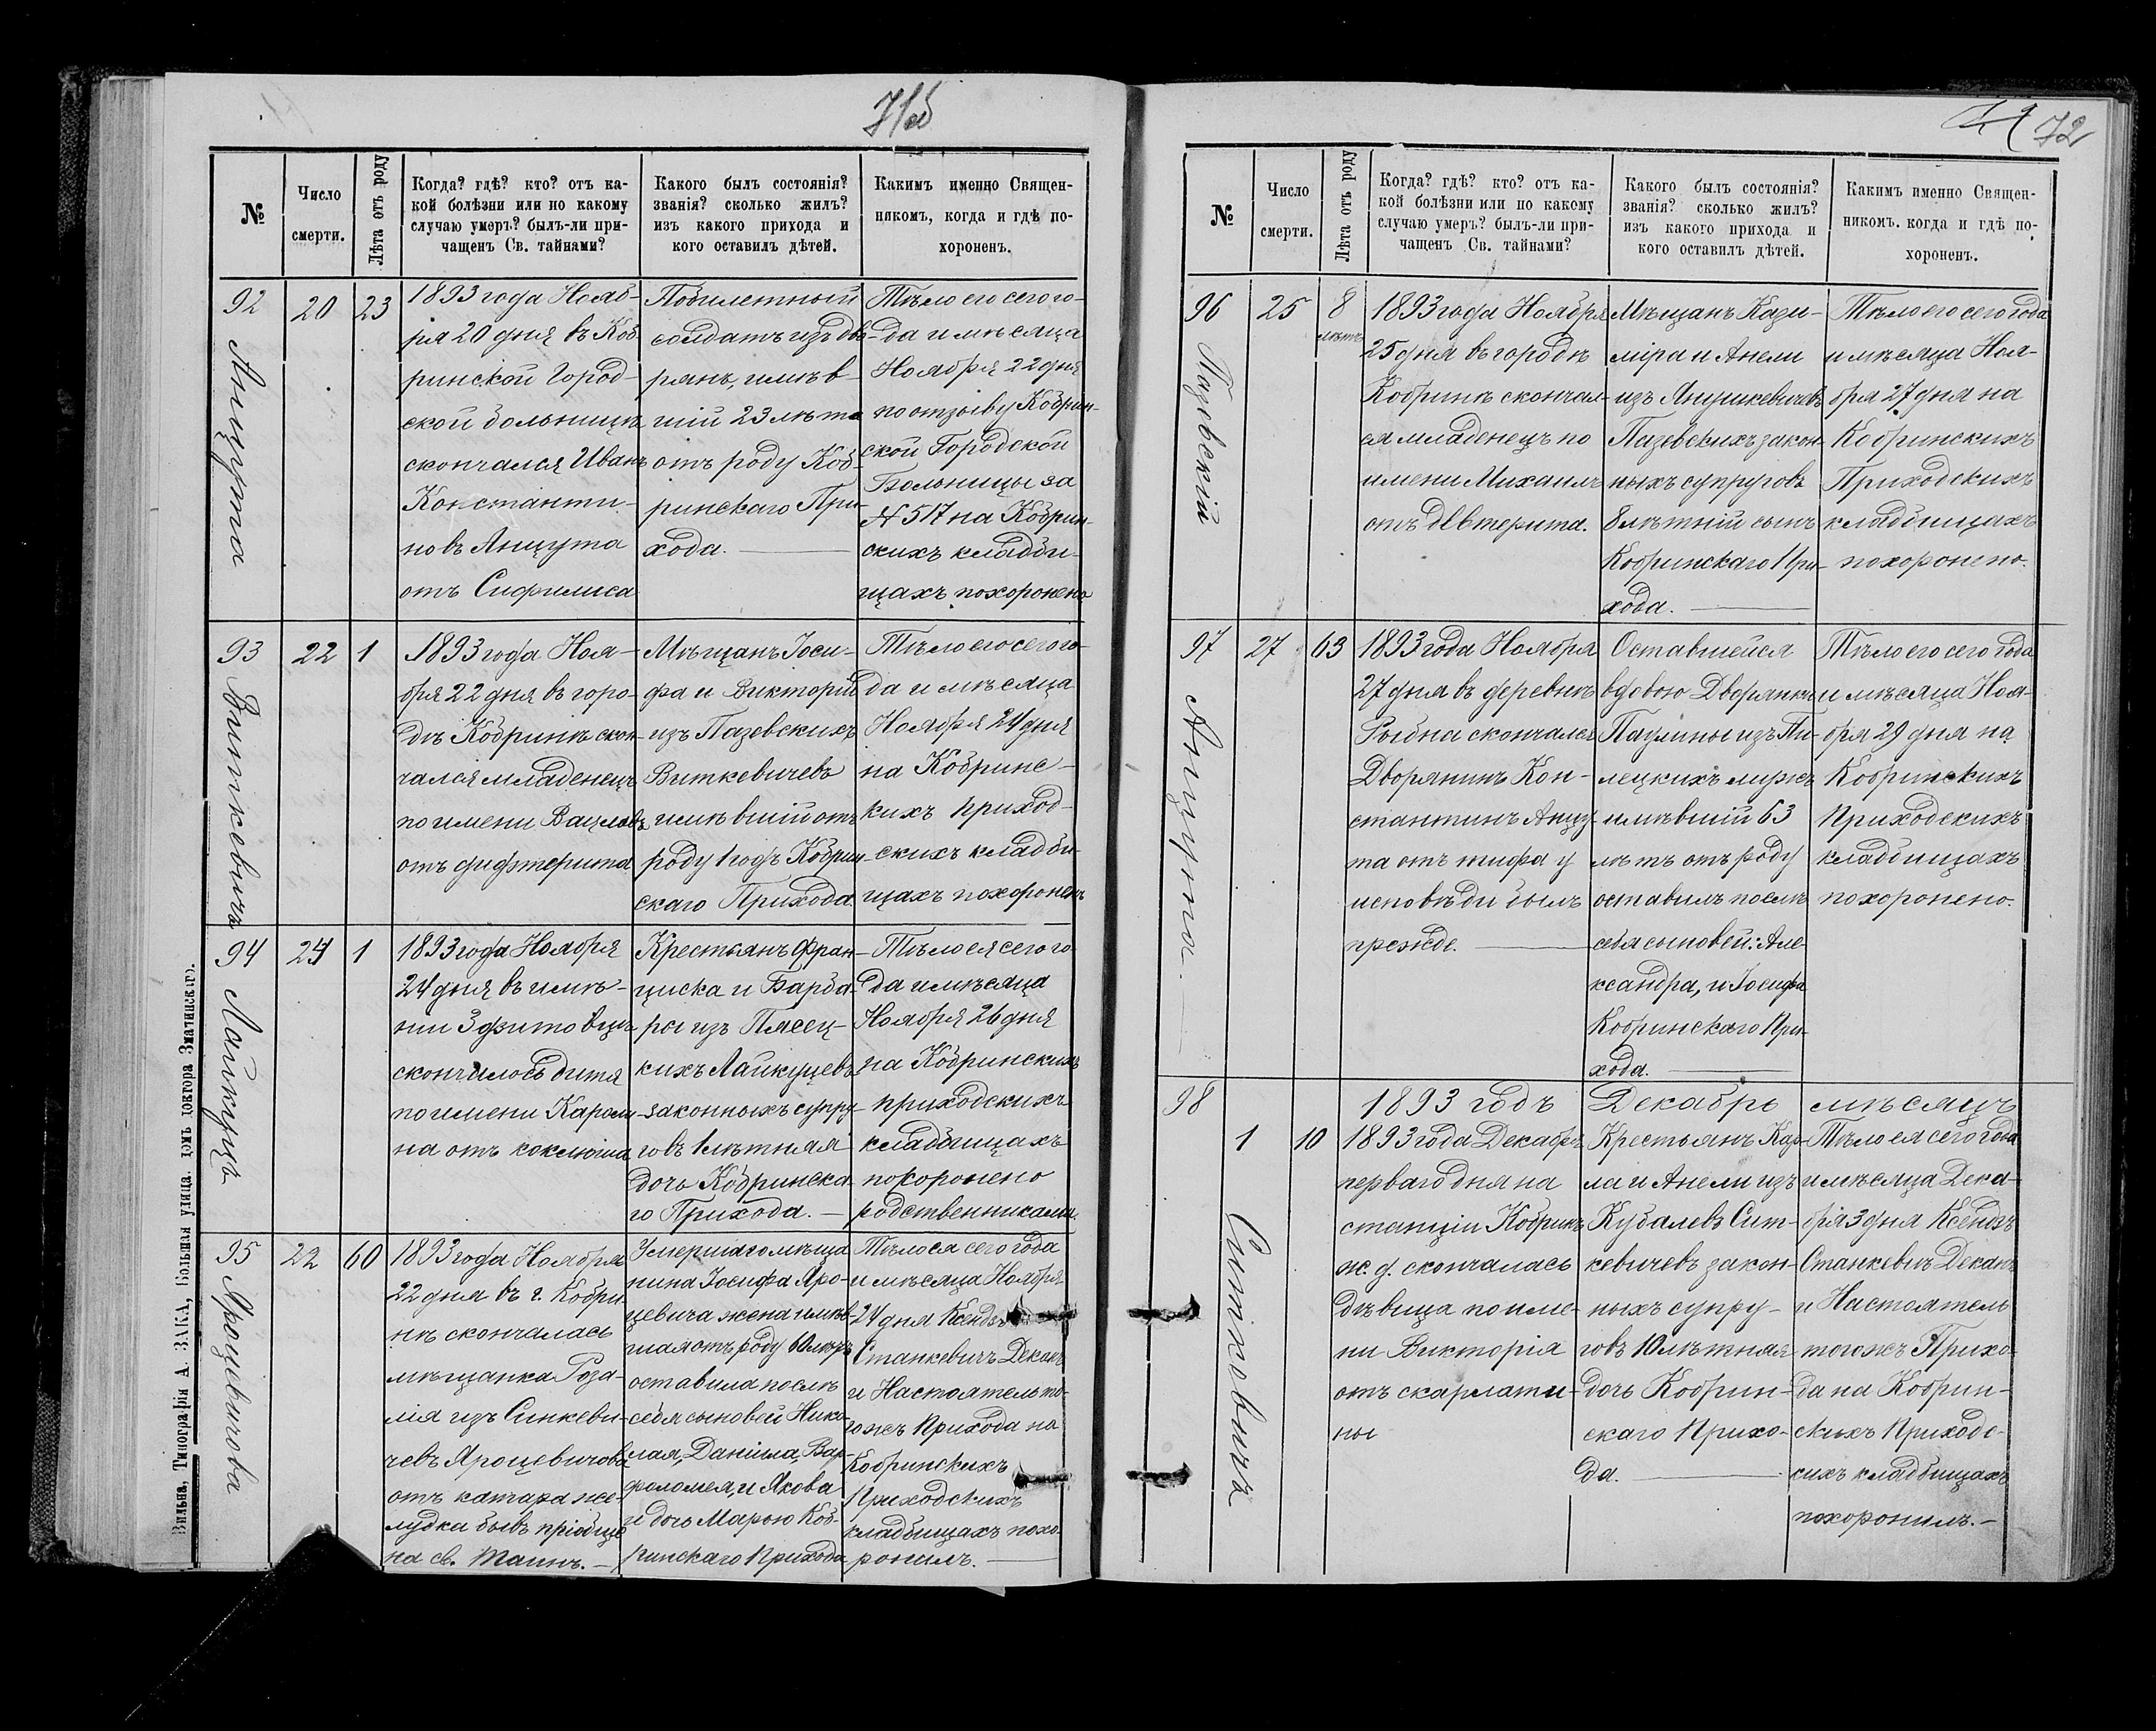 71об
№
Число
смерти.
Лѣта отъ роду
Когда? гдѣ? кто? отъ ка-
кой болѣзни или по какому
случаю умеръ? былъ-ли при-
чащенъ Св. тайнами?
Какого былъ состоянія?
званія? сколько жилъ?
изъ какого прихода и
кого оставилъ дѣтей.
Какимъ именно Священ-
никомъ, когда и гдѣ по-
хороненъ.
92
Анцута
20
23
1893 года Нояб-
ря 20 дня въ Коб-
ринской Город-
ской больницѣ
скончался Иванъ
Константи-
новъ Анцута
отъ Сифилиса
Побилетный
солдатъ изъ дво-
рянъ, имѣв-
шій 23 лѣта
отъ роду Коб-
ринскаго При-
хода.
Тѣло его сего го-
да и мѣсяца
Ноября 22 дня
по отзыву Кобрин-
ской Городской
Больницы за
№ 517 на Кобрин-
скихъ кладби-
щахъ похоронено
93
Виткевичъ
22
1
1893 года Ноя-
бря 22 дня въ горо-
дѣ Кобринѣ скон-
чался младенецъ
по имени Вацлавъ
отъ дифтерита
Мѣщанъ Іоси-
фа и Викторіи
изъ Пазевскихъ
Виткевичевъ
имѣвшій отъ
роду 1 годъ Кобрин-
скаго Прихода.
Тѣло его сего го-
да и мѣсяца
Ноября 24 дня
на Кобринс-
кихъ приход-
скихъ кладби-
щахъ похоронено
94
Лайкуцъ
24
1
1893 года Ноября
24 дня въ имѣ-
ніи Зфитовцѣ
скончилось дитя
по имени Кароли-
на отъ коклюша
Крестьянъ Фран-
циска и Барба-
ры изъ Плесец-
кихъ Лайкуцевъ
законныхъ супру-
говъ 1 лѣтняя
дочь Кобринска-
го Прихода.
Тѣло ея сего го-
да и мѣсяца
Ноября 26 дня
на Кобринскихъ
приходскихъ
кладбищахъ
похоронено
родственниками.
95
Ярощевичова
22
60
1893 года Ноября
22 дня въ г. Кобри-
нѣ скончалась
мѣщанка Роза-
лія изъ Синкеви-
чевъ Ярощевичова
отъ катара же-
лудка бывъ пріобще-
на св. Таинъ.
Умершаго мѣща-
нина Іосифа Яро-
щевича жена имѣв-
шая отъ роду 60 лѣтъ
оставила послѣ
себя сыновей Нико-
лая, Даніила, Вар-
фоломея, и Якова
и дочь Марью Коб-
ринскаго Прихода
Тѣло ея сего года
и мѣсяца Ноября
24 дня Ксендзъ
Станкевичъ Деканъ
и Настоятель то-
гожъ Прихода на
Кобринскихъ
Приходскихъ
кладбищахъ похо-
ронилъ.
Вильна, Типографія А. ЗАКА, Большая улица, домъ доктора Змачинскаго.
72
№
Число
смерти.
Лѣта отъ роду
Когда? гдѣ? кто? отъ ка-
кой болѣзни или по какому
случаю умеръ? былъ-ли при-
чащенъ Св. тайнами?
Какого былъ состоянія?
званія? сколько жилъ?
изъ какого прихода и
кого оставилъ дѣтей.
Какимъ именно Священ-
никомъ. когда и гдѣ по-
хороненъ.
96
Пазевскій
25
8
лѣтъ
1893 года Ноября
25 дня въ городѣ
Кобринѣ скончал-
ся младенецъ по
имени Михаилъ
отъ
Мѣщанъ Кази-
міра и Анели
изъ Янушкевичевъ
Пазевскихъ закон-
ныхъ супруговъ
8 лѣтній сынъ
Кобринскаго При-
хода.
Тѣло его сего года
и мѣсяца Ноя-
бря 27 дня на
Кобринскихъ
Приходскихъ
кладбищахъ
похоронено.
97
Анцута.
27
63
1893 года Ноября
27 дня въ деревнѣ
Рыбна скончался
Дворянинъ Кон-
стантинъ Анцу-
та отъ тифа у
исповѣди былъ
прежде.
Оставшейся
вдовою Дворянки
Паулины изъ Пи-
лецкихъ мужъ
имѣвшій 63
лѣтъ отъ роду
оставилъ послѣ
себя сыновей: Але-
ксандра, и Іосифа
Кобринскаго При-
хода.
Тѣло его сего года
и мѣсяца Ноя-
бря 29 дня на
Кобринскихъ
Приходскихъ
кладбищахъ
похоронено.
98
1893 годъ Декабрь мѣсяцъ
Ситкевичъ
1
10
1893 года Декабря
перваго дня на
станціи Кобринъ
ж. д. скончалась
дѣвица по име-
ни Викторія
отъ скарлати-
ны
Крестьянъ Кар-
ла и Анели изъ
Кубалевъ Сит-
кевичевъ закон-
ныхъ супру-
говъ 10 лѣтняя
дочь Кобрин-
скаго Прихо-
да.
Тѣло ея сего года
и мѣсяца Дека-
бря 3 дня Ксендзъ
Станкевичъ Деканъ
и Настоятель
тогожъ Прихо-
да на Кобрин-
скихъ Приходс-
кихъ кладбищахъ
похоронилъ.